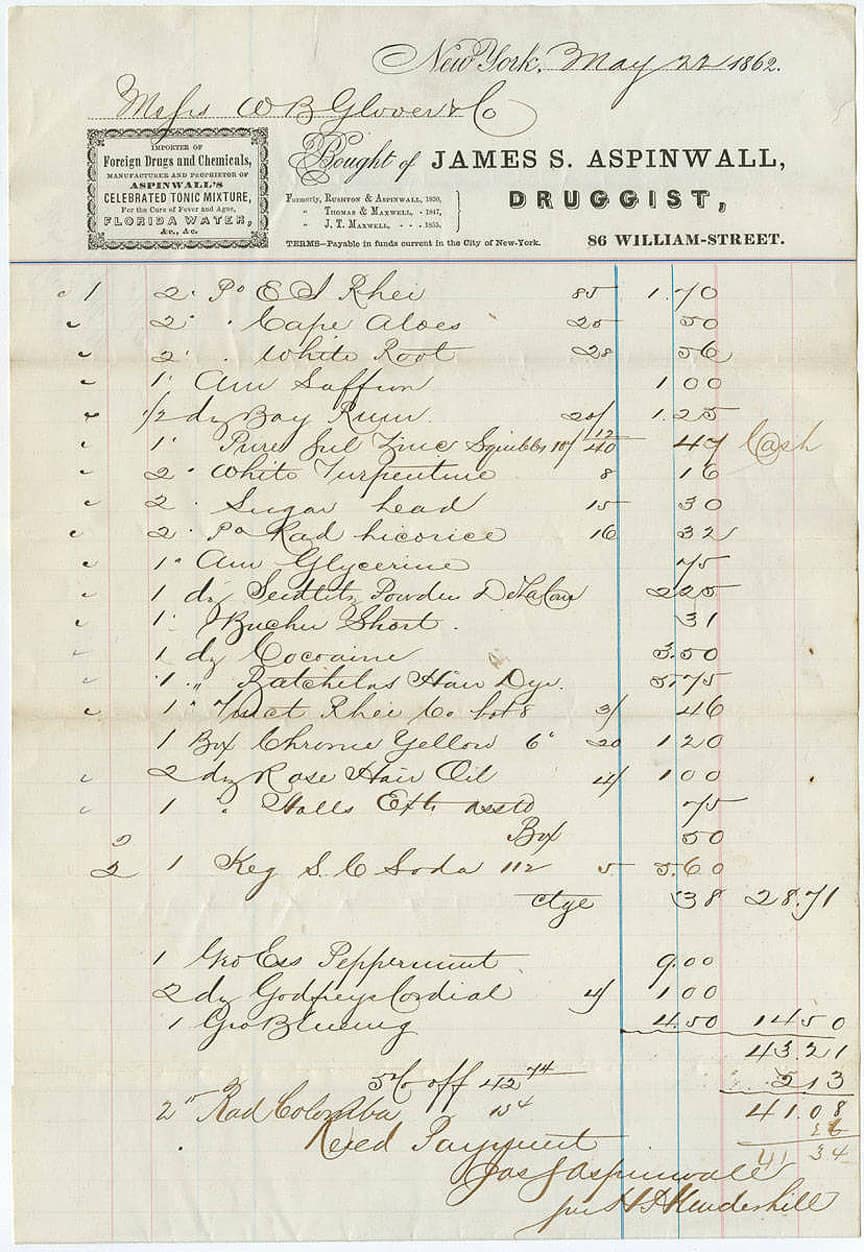 New York, May 22 1862.
Messrs W B Glover & Co
IMPORTER OF
Foreign Drugs and Chemicals,
MANUFACTURER AND PROPRIETOR OF
ASPINWALL'S
CELEBRATED TONIC MIXTURE,
For the Cure of Fever and Ague,
FLORIDA WATER,
&c., &c.
Bought of JAMES S. ASPINWALL,
DRUGGIST,
Formerly, RUSHTON & ASPINWALL, 1830,
" THOMAS & MAXWELL, - 1847,
" J. T. MAXWELL, - - - 1855,
TERMS—Payable in funds current in the City of New-York.
86 WILLIAM-STREET.
1 2 " Po E I Rhei 85 1.70
2 " " Cape Aloes 25 50
2 " " White Root 28 56
1 " Am Saffron 1 00
1/2 dz Bay Rum 20/ 1.25
1 " Pure Sul Zinc Squibbs 10/ 12/40 47 Cash
2 " White Turpentine 8 16
2 " Sugar head 15 30
2 " Po Rad Licorice 16 32
1 " Am Glycerine 75
1 dz Seidlitz Powders 2 25
1 " Buchu Short 31
1 dz Cocoaine 3.50
1 " Batchelos Hair Dye. 5.75
1 " Tinct Rhei Co bot 8 3/ 46
1 Box Chrome Yellow 6" 20 1 20
2 dz Rose Hair Oil 4/ 1 00
1 " Halls Ext asstd 75
Box 50
2 1 Keg S. C Soda 112 5 5.60
Ctge 38 28.71
1 Gro Ess Peppermint 9.00
2 dz Godfreys Cordial 4/ 1 00
1 Gro Bluing 4.50 14 50
43.21
5% off 42 74 2 13
2 " Rad Colomba 13 41.08
26
Recd Payment 41 34
Jas S Aspinwall
per H D Henderhill